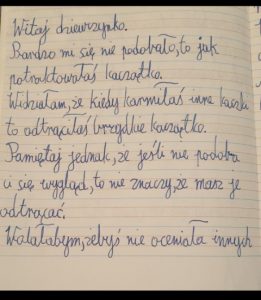 Witaj dziewczynko.
Bardzo mi się nie podobało, to jak
potraktowałaś kaczątko.
Widziałam, że kiedy karmiłaś inne kaczki
to odtrąciłaś brzydkie kaczątko.
Pamiętaj jednak, że jeśli nie podoba
ci się wygląd, to nie znaczy, że masz je
odtrącać.
Wolałabym, żebyś nie oceniała innych